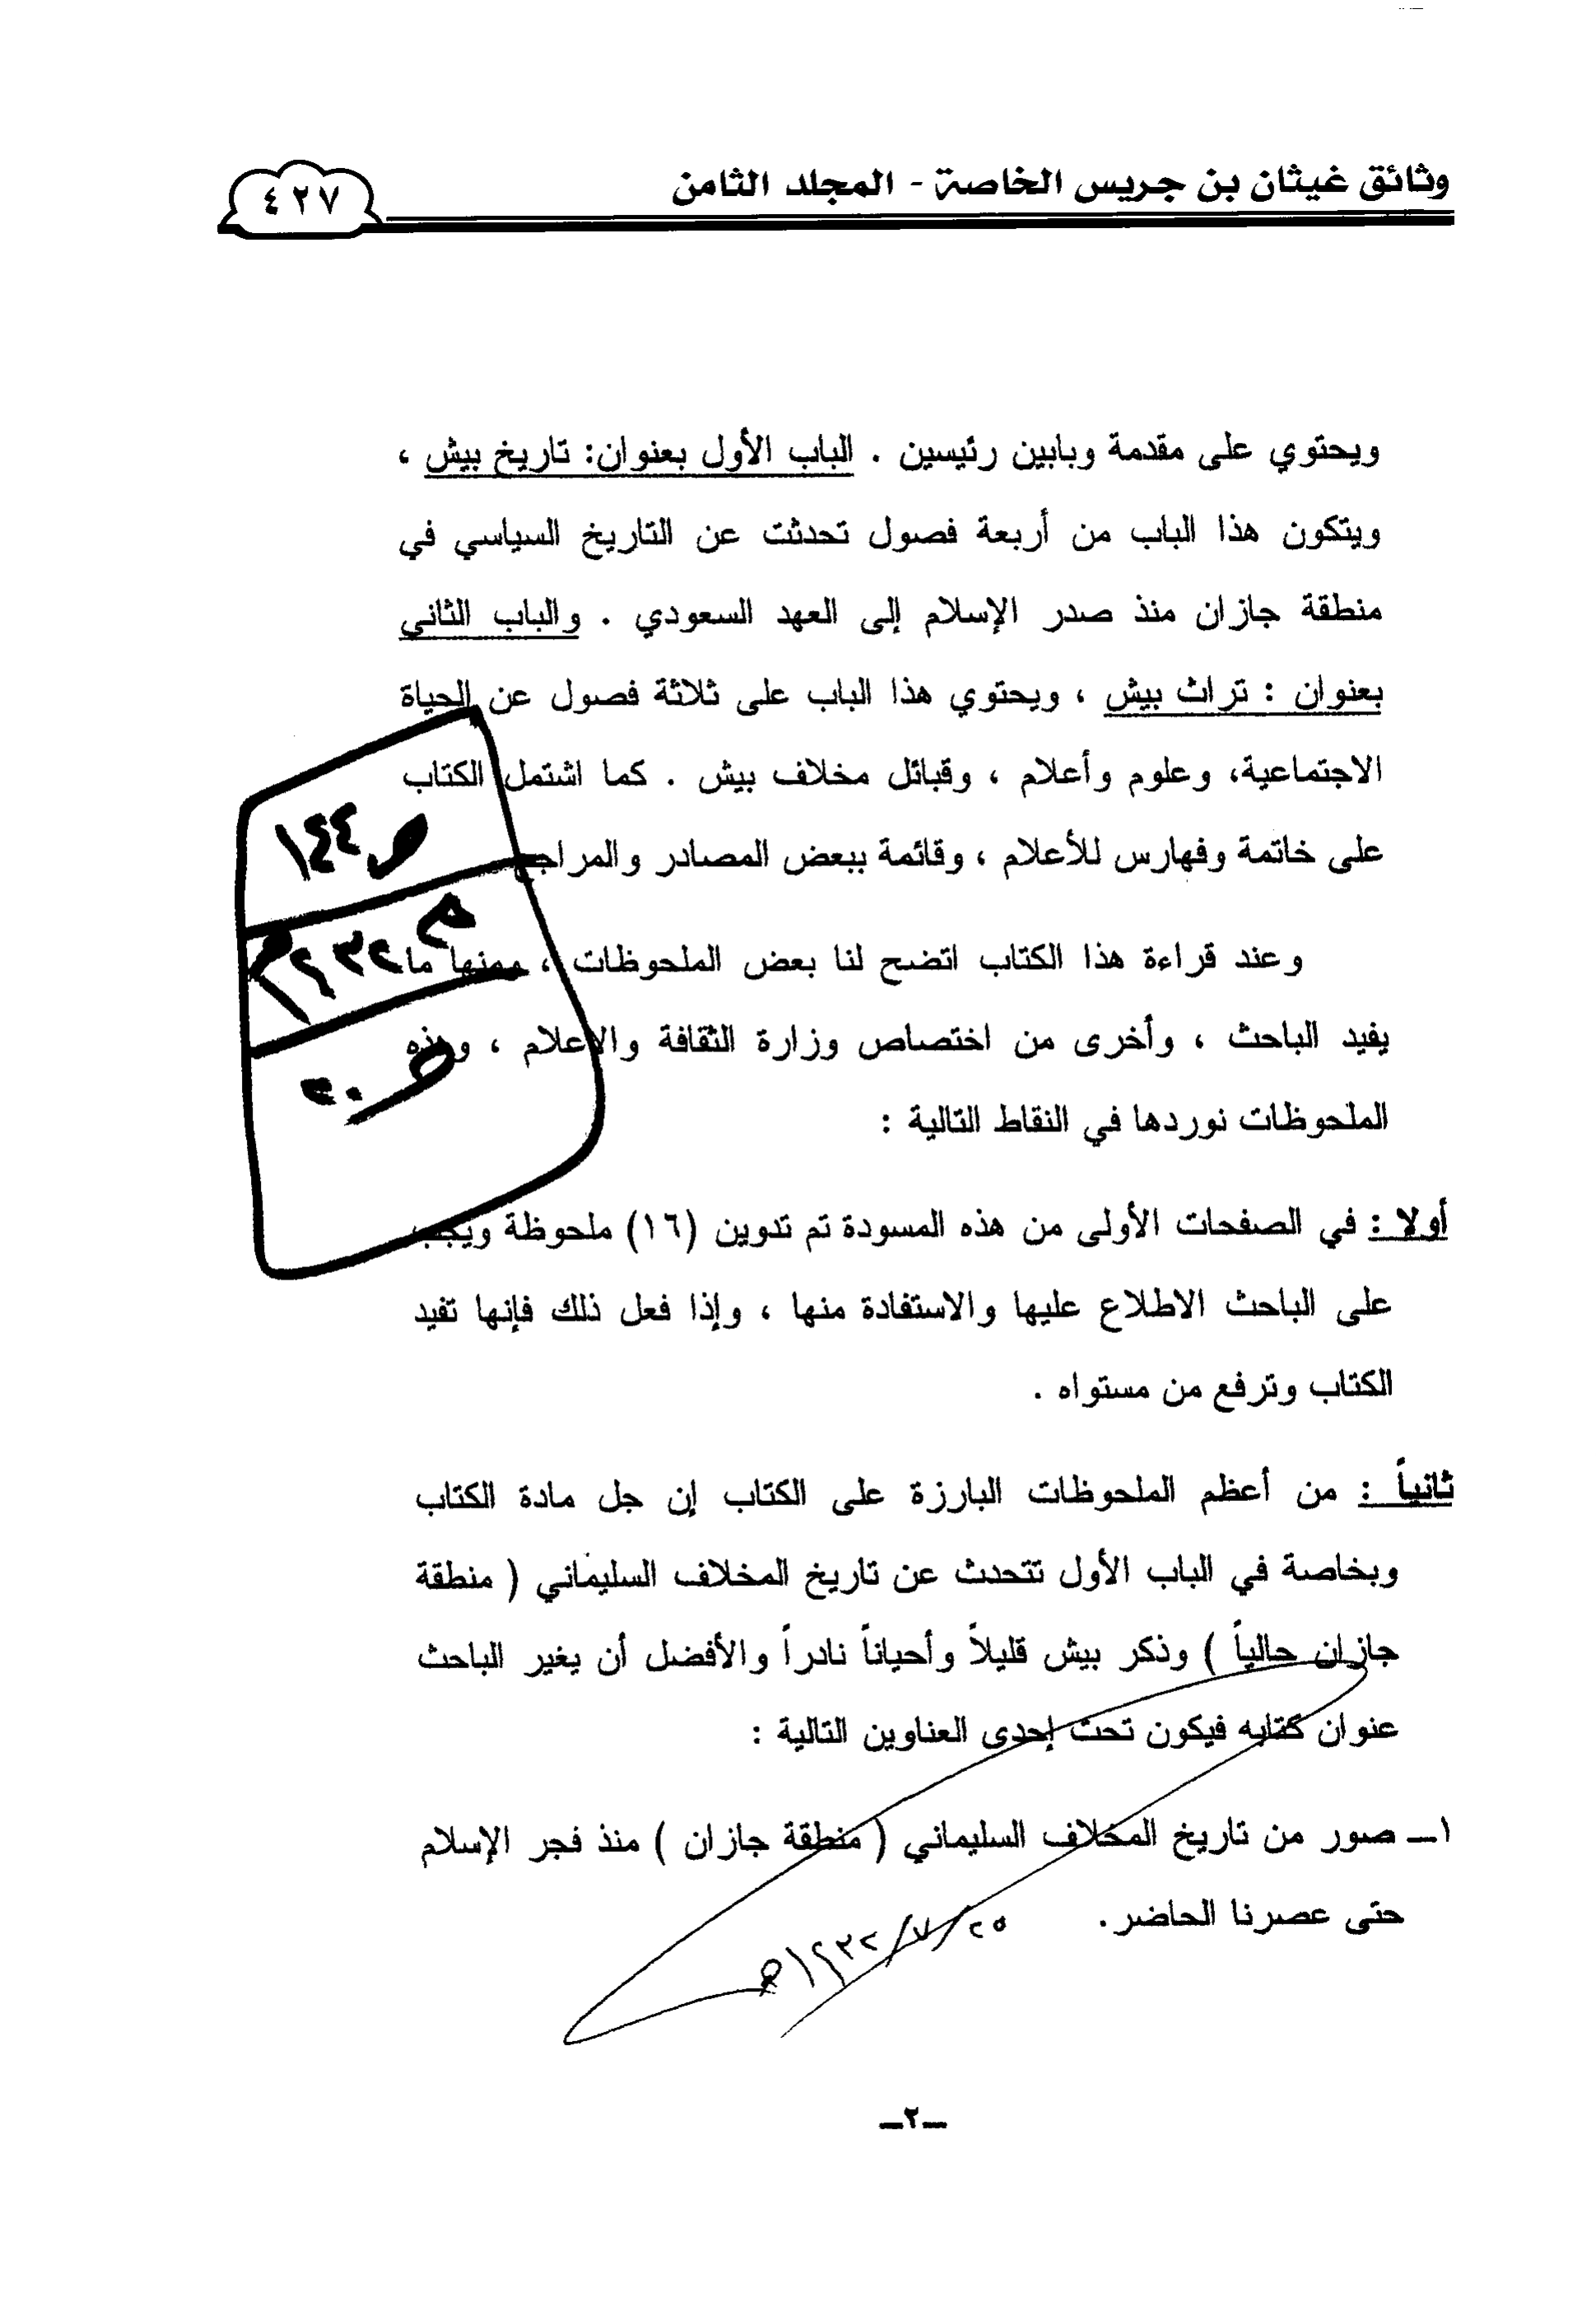 وثائق غيثان بن جريس الخاصة - المجلد الثامن
٤٢٧
ويحتوي على مقدمة وبابين رئيسين . الباب الأول بعنوان: تاريخ بيش ،
ويتكون هذا الباب من أربعة فصول تحدثت عن التاريخ السياسي في
منطقة جازان منذ صدر الإسلام إلى العهد السعودي . والباب الثاني
بعنوان : تراث بيش ، ويحتوي هذا الباب على ثلاثة فصول عن الحياة
الاجتماعية، وعلوم وأعلام ، وقبائل مخلاف بيش . كما اشتمل الكتاب
على خاتمة وفهارس للأعلام ، وقائمة ببعض المصادر والمراجع
وعند قراءة هذا الكتاب اتضح لنا بعض الملحوظات ، ومنها ما
يفيد الباحث ، وأخرى من اختصاص وزارة الثقافة والإعلام ، وهذه
الملحوظات نوردها في النقاط التالية :
أولا : في الصفحات الأولى من هذه المسودة تم تدوين (١٦) ملحوظة ويجب
على الباحث الاطلاع عليها والاستفادة منها ، وإذا فعل ذلك فإنها تفيد
الكتاب وترفع من مستواه .
ثانياً : من أعظم الملحوظات البارزة على الكتاب إن جل مادة الكتاب
وبخاصة في الباب الأول تتحدث عن تاريخ المخلاف السليماني ( منطقة
جازان حالياً ) وذكر بيش قليلاً وأحياناً نادراً والأفضل أن يغير الباحث
عنوان كتابه فيكون تحت إحدى العناوين التالية :
١ــ صور من تاريخ المخلاف السليماني ( منطقة جازان ) منذ فجر الإسلام
حتى عصرنا الحاضر.
٢٥/٧/١٤٣٢هـ
ص١٤٤
ــ٢ــ